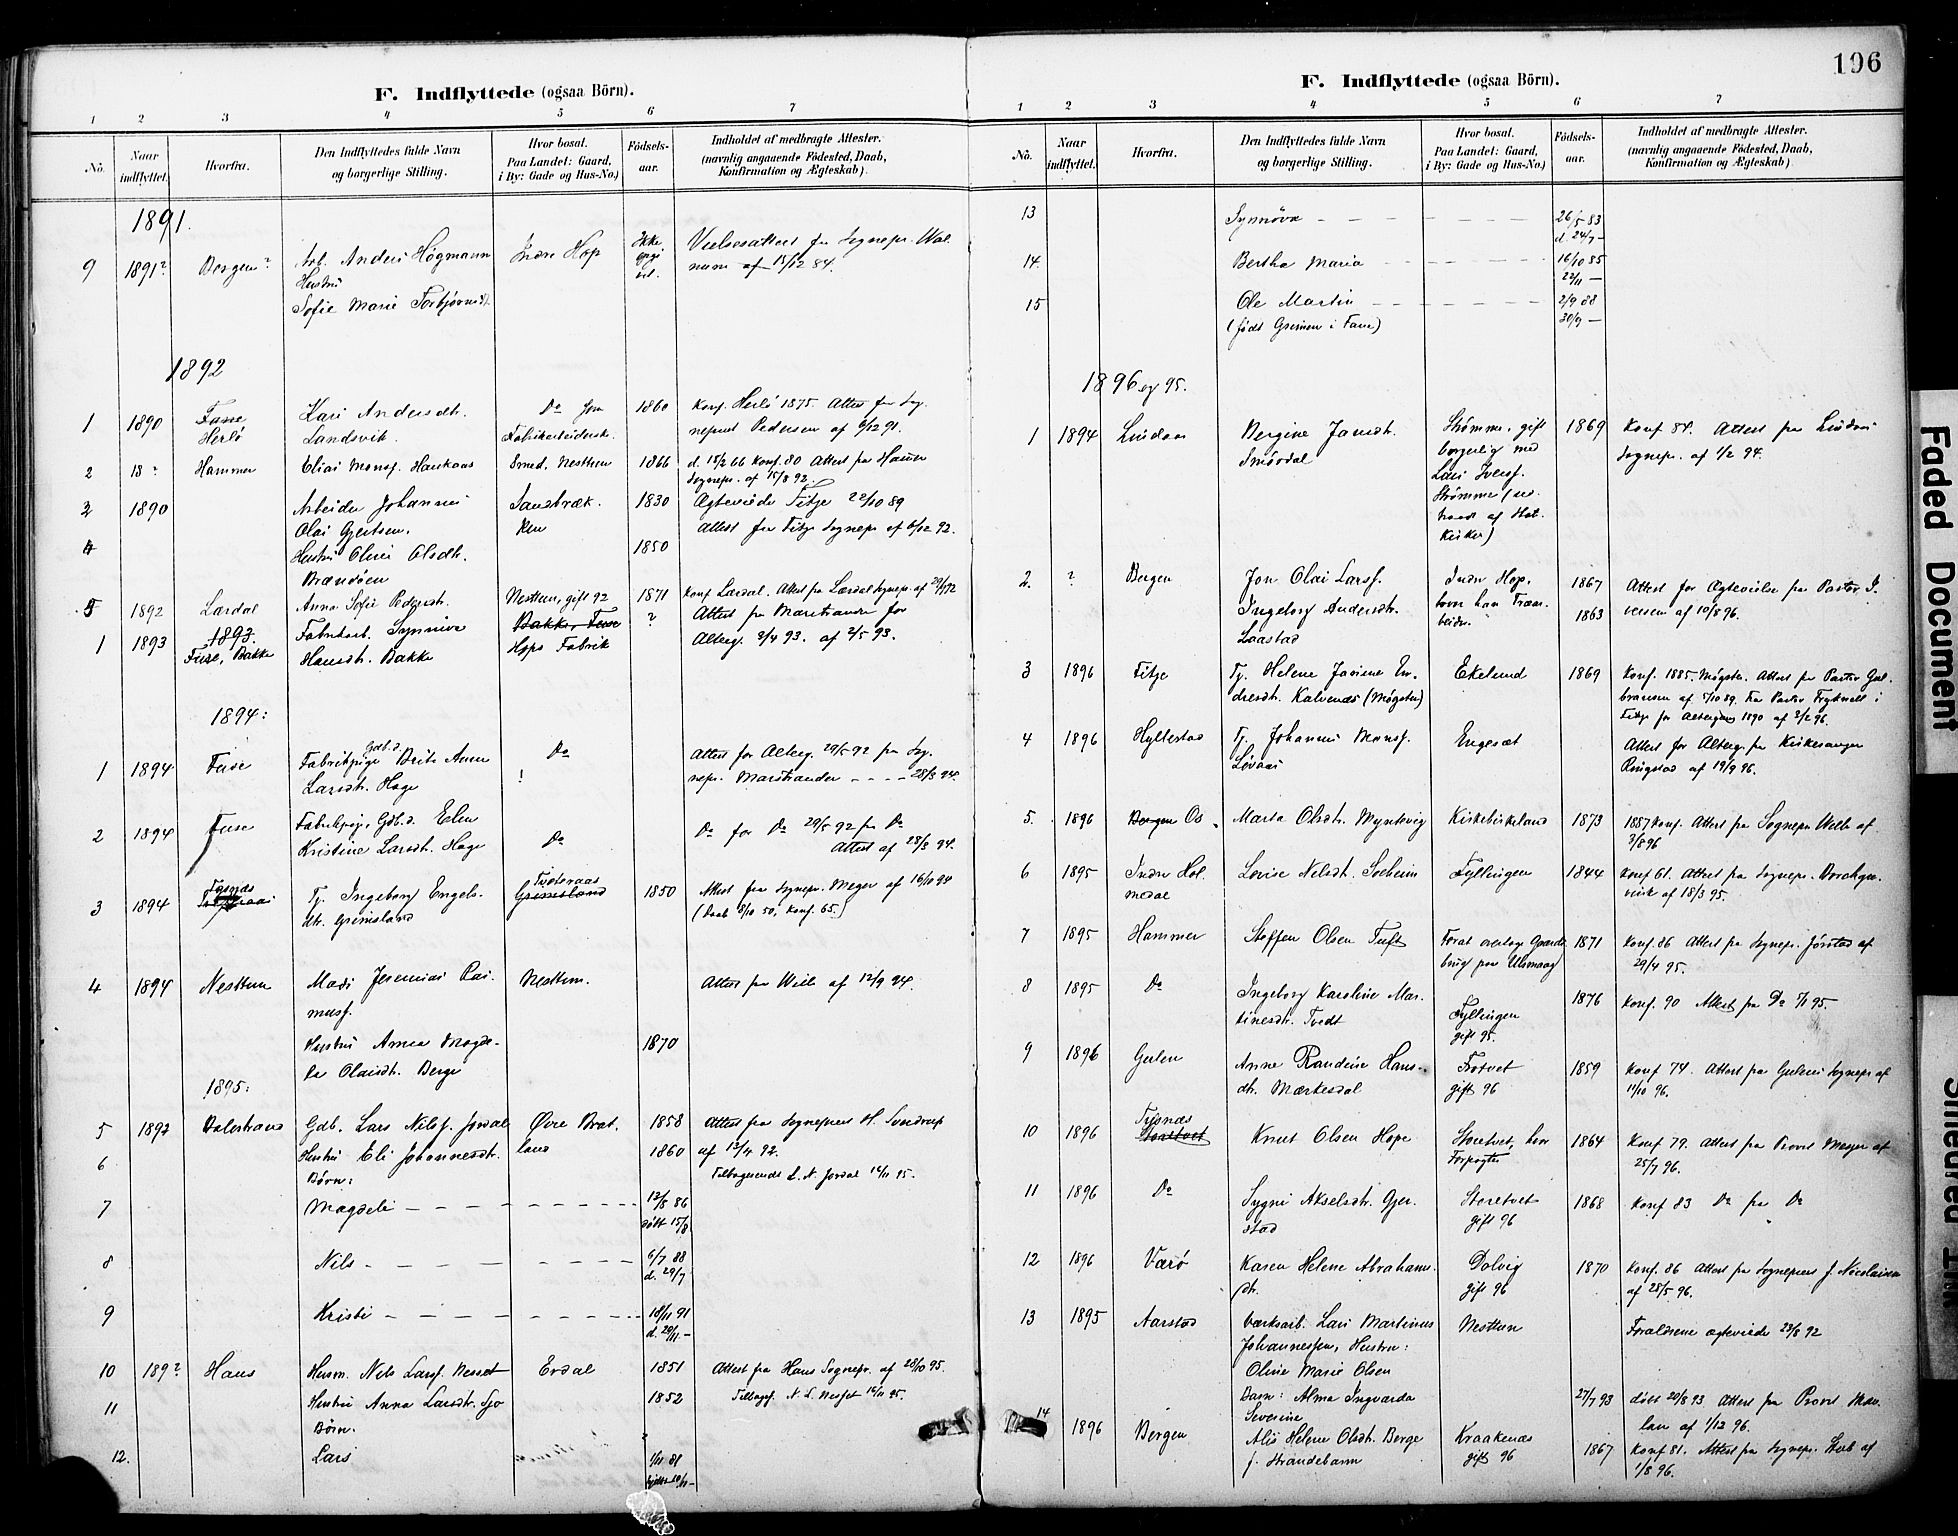 F. Indflyttede (ogsaa Börn).
1 2 3 4 5 6 7
No. Naar indflyttet. Hvorfra. Den Indflyttedes fulde Navn og borgerlige Stilling. Hvor bosat. Paa Landet: Gaard, i By: Gade og Hus-No.) Födsels-aar. Indholdet af medbragte Attester. (navnlig angaaende Födested, Daab, Konfirmation og Ægteskab).
1891.
9 1891? Bergen? Arb. Anders Högmann Indre Hop Ikke opgivet
Hustru
Sofie Marie Torbjörns
Vielsesattest fra Sognepr. af 15/12 84.
1892
1 1890 Fane Herlö Kari Andersdt. Landsvik. Do 1860 Konf. Herlö 1875. Attest fra Sog-
neprest Pedersen af 6/12 91.
2 18 ? Hammer Elias Monsf. Haukaas Smed, Nesttun 1866 d. 15/2 66 Konf. 80 Attest fra Hammer
Sognepr. af 15/8 92.
3 1890 Arbeider Johannes 1830 Ægteviede Fitje 22/10 89
Olai Gjertsen. Attest fra Fitje Sognepr. af 6/12 92.
4 Hustru Oline Olsdt. 1850
Brændöen
5 1892 Lærdal Anna Sofie Pedersdt. Nesttun, gift 92 1871 Konf Lærdal. Attest fra Lærdal Sognepr. af 29/1 92
1893.
1 1893 Fuse, Bakke Fabrikarb. Synnive Bakke, Fuse ? Attest fra Marstrander for
Hansdt. Bakke Hops Fabrik Alterg. 3/4 93. af 2/5 93.
1894:
1 1894 Fuse Fabrikpige Gdb.d. Brita Anna Do Attest for Alterg. 29/5 92 fra Sog-
Larsdt. Hage nepr. Marstrander - - - - 28/3 94.
2 1894 Fuse Fabrikpig. Gdb.d. Elen Do for Do 29/5 92 fra Do
Kristine Larsdt. Hage Do Attest af 28/3 94.
3 1894 Tysnæs Tj. Ingeborg Engels- Grimsland 1850 Attest fra Sognepr. Meyer af 16/10 94
dt. Grimsland (Daab 8/10 50, Konf. 65.)
4 1894 Nesttun Mads Jeremias Ras- Nesttun. Attest fra Welb af 12/9 94.
musf.
Hustru Anna Magde- 1870
la Olaisdt. Berge
1895:
5 1892 Balestrand Gdb. Lars Nilsf. Jordal Övre Brat- 1858 Attest fra Sogneprest H. Svendrup
6 Hustru Eli Johannesdt. land 1860 af 12/4 92.
Börn: Tilbagesendt L. N. Jordal 14/11 95.
7 Magdeli - - - - - - 12/8 86
döbt 15/8
8 Nils - - - - - - 6/7 88
d. 29/7
9 Kristi - - - - - - 18/11 91
d. 20/11 -
10 189? Haus Husm. Nils Larsf. Nesset Erdal 1851 Attest fra Haus Sognepr. af 28/10 95.
11 Hustru Anna Larsdt. Sjo 1852 Tilbagef. N. L. Nesset 14/11 95.
Börn.
12. Lars 1/11 81
196
F. Indflyttede (ogsaa Börn).
1 2 3 4 5 6 7
No. Naar indflyttet. Hvorfra. Den Indflyttedes fulde Navn og borgerlige Stilling. Hvor bosat. Paa Landet: Gaard, i By: Gade og Hus-No.) Födsels-aar. Indholdet af medbragte Attester. (navnlig angaaende Födested, Daab, Konfirmation og Ægteskab).
13 Synnöva - - - - - - 26/5 83
d. 24/7 -
14. Bertha Maria - - - - - - 16/10 85
22/11 -
15 Ole Martin - - - - - - 2/9 88
(födt Grimen i Fane) 30/9 -
1896 og 95.
1 1894 Lindaas Bergine Jansdt. Strömme, gift 1869 Konf 84. Attest fra Lindaas
borgerlig med Sognepr. af 1/2 94.
Lars Iversf.
Strömme (ud-
traadt af Stats-
kirken)
2. ? Bergen Jon Olai Larsf. Indre Hop, 1867 Attest for Ægtevielse fra Pastor I-
Ingeborg Andersdt. 1863 versen af 10/8 96.
Laastad
3 1896 Fitje Tj. Helene Janine En- Ekelund 1869 Konf. 1885. Mögster. Attest fra Pastor Gul-
dresdt. Kalvenæs (Mögster) bransen af 5/10 89. fra Pastor Frydenall i
Fitje for Altergang 1890 af 3/2 96.
4 1896 Hyllestad Tj. Johannes Monsf. Engesæt Attest for Alterg. fra Kirkesanger
Lövaas Ringstad af 19/9 96.
5. 1896 Bergen Os Marta Olsdt. Myntevig Kirkebirkeland 1873 1887 Konf. Attest fra Sognepr. Welb af
3/8 96
6 1895 Indre Hol- Lovise Nelsdt. Soeheim Fyllingen 1844 Konf 61. Attest fra Sognepr.
medal af 18/3 95.
7 1895 Hammer Steffen Olsen Tuft 1871 Konf. 86 Attest fra Sognepr. Jörstad af
29/4 95.
8 1895 Do Ingeborg Karoline Mar- Fyllingen 1876 Konf. 90 Attest fra Do 5/1 95.
tinesdt. Tvedt gift 95.
9 1896 Gulen Anne Randine Hans- Frotvet 1859 Konf 74. Attest fra Gulens Sognepr. af
dt. Mærkesdal gift 96 11/10 96.
10 1896 Tysnæs Storetvet Knut Olsen Hope Storetvet, hos 1864 Konf 79. Attest fra Provst Meyer af
Forpagter 25/7 96.
11 1896 Do Sygni Akselsdt. Gjer- Storetvet 1868 Konf 83 Do fra Do
stad gift 96
12 1896 Værö Karen Helene Abrahams- Dolvig 1870 Konf. 86 Attest fra Sogneprest J. Nicolaisen
dt. gift 96 af 28/5 96.
13 1895 Aarstad Værksarb. Lars Martinus Nesttun Forældrene ægteviede 23/8 92
Johannessen, Hustru:
Oline Marie Olsen
Barn: Alma Ingvarda 27/7 93 döbt 20/8 93 Attest fra Provst
Severine af 1/12 96.
14 1896 Bergen Alis Helene Olsdt. Berge Kraakenæs 1867 Konf 81. Attest fra Sognepr. af
f. Strandebarm gift 96 1/8 96.
Faded Document